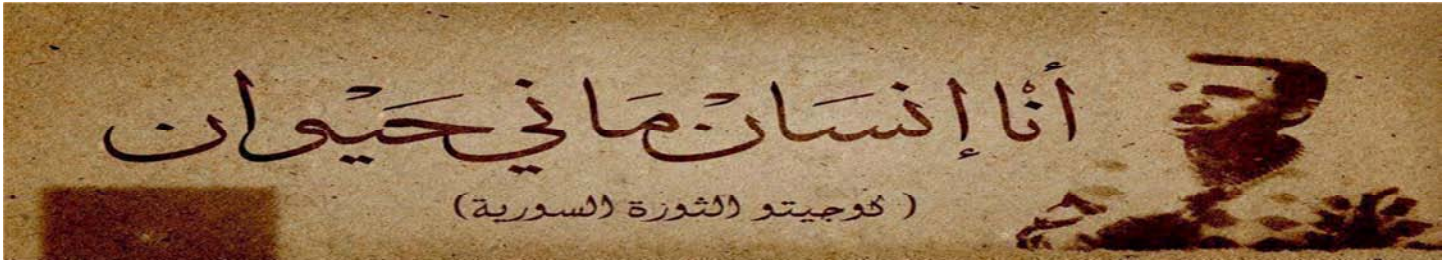 أنْا إنسَانْ مَاني حَيْوان
( كوجيتو الثورة السورية)